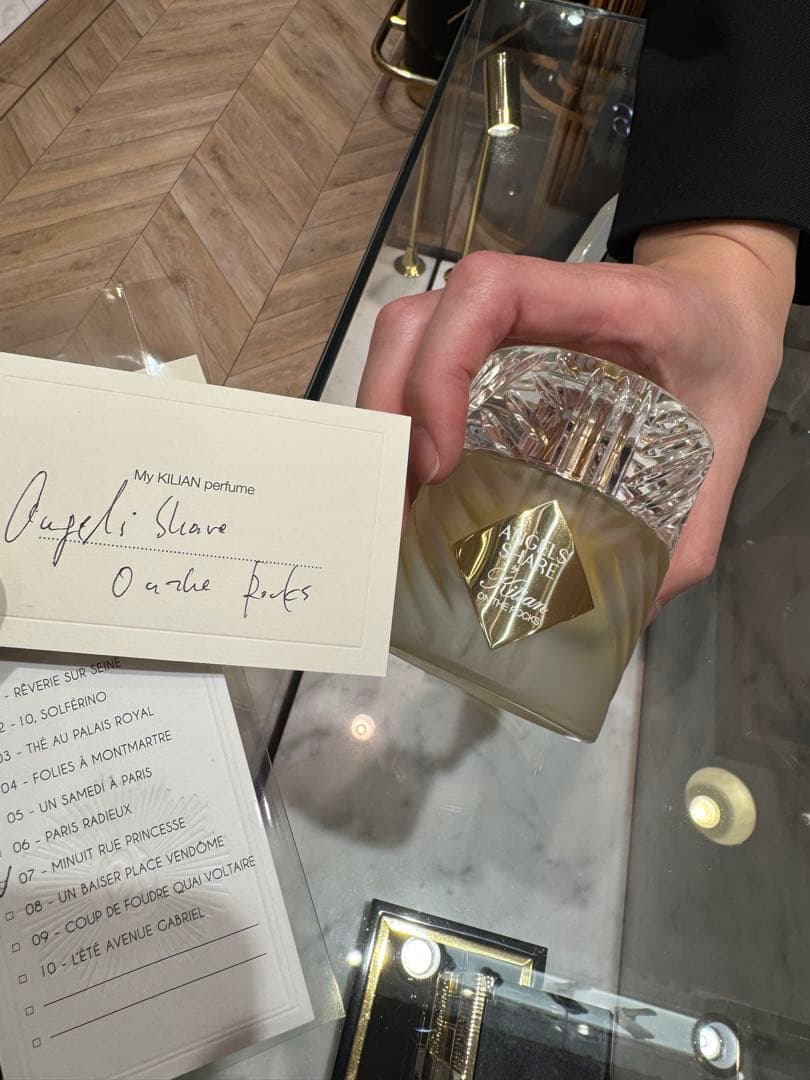 My KILIAN perfume
Angels Share
On the Rocks
ANGELS'
SHARE
by
Kilian
ON THE ROCKS
- RÊVERIE SUR SEINE
2 - 10, SOLFÉRINO
03 - THÉ AU PALAIS ROYAL
04 - FOLIES À MONTMARTRE
05 - UN SAMEDI À PARIS
06 - PARIS RADIEUX
07 - MINUIT RUE PRINCESSE
08 - UN BAISER PLACE VENDÔME
09 - COUP DE FOUDRE QUAI VOLTAIRE
10 - L'ÉTÉ AVENUE GABRIEL